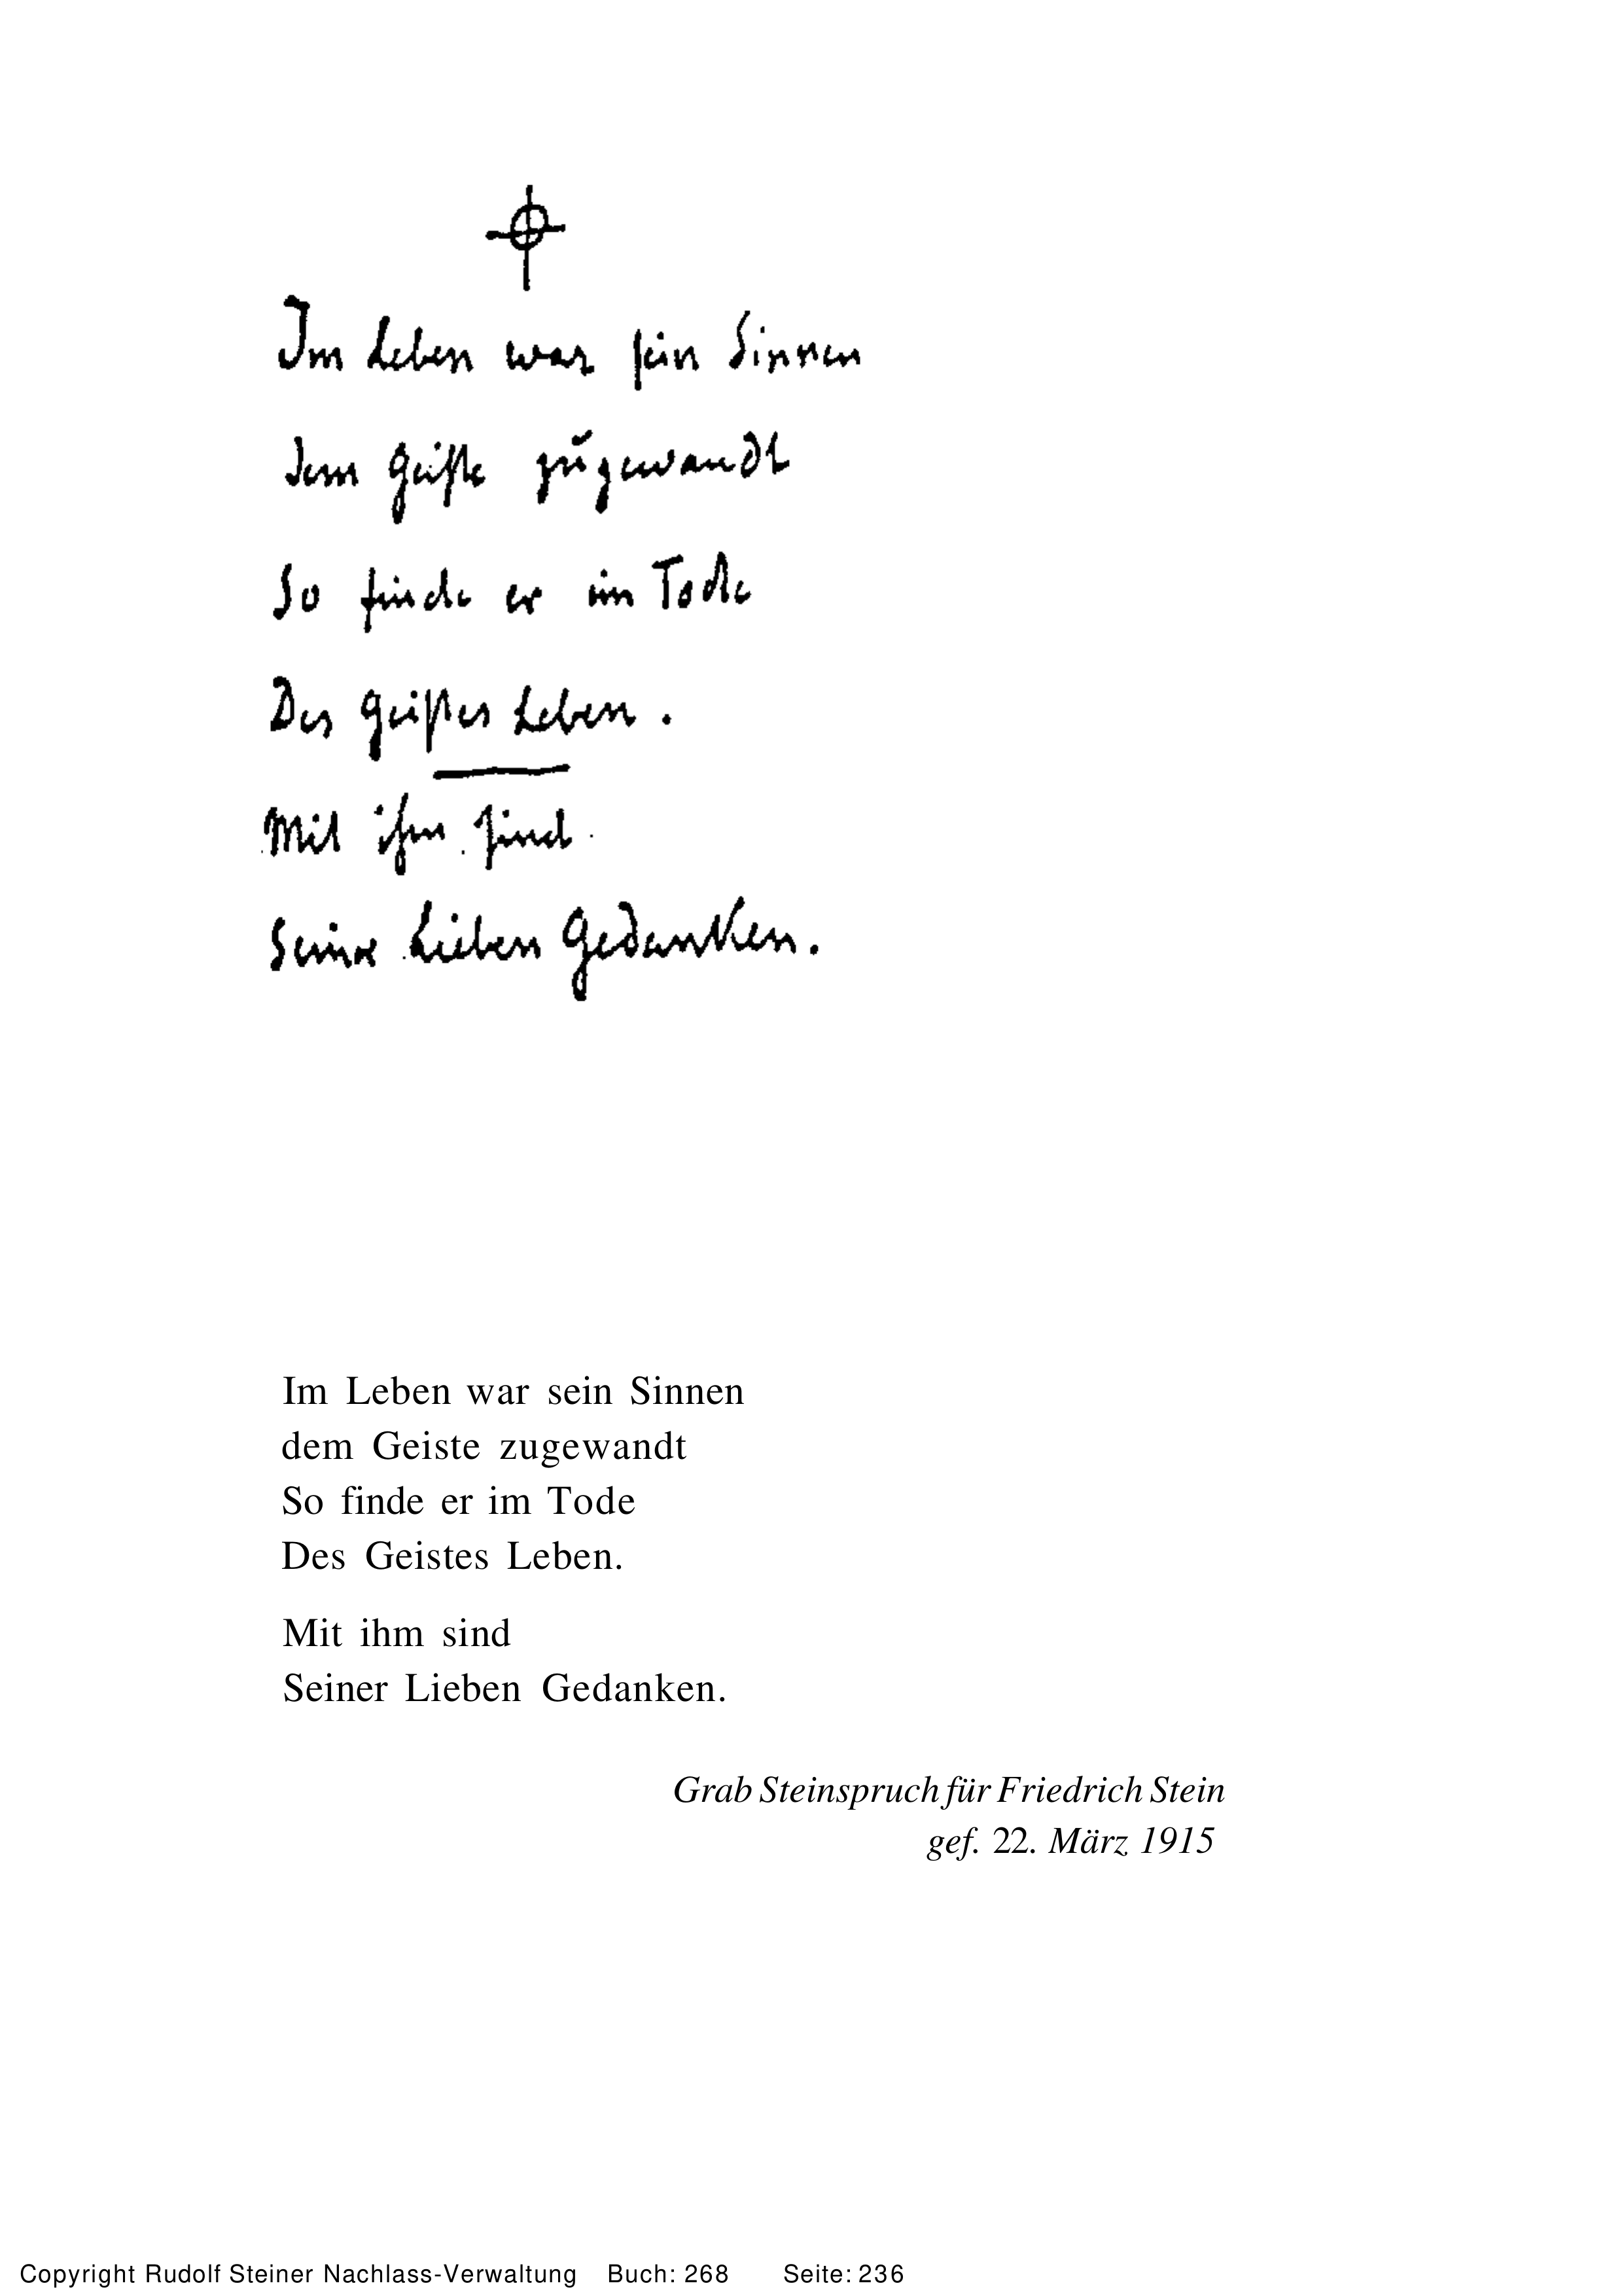 Im Leben war sein Sinnen
dem Geiste zugewandt
So finde er im Tode
Des Geistes Leben.
Mit ihm sind
Seiner Lieben Gedanken.
Im Leben war sein Sinnen
dem Geiste zugewandt
So finde er im Tode
Des Geistes Leben.
Mit ihm sind
Seiner Lieben Gedanken.
Grab Steinspruch für Friedrich Stein
gef. 22. März 1915
Copyright Rudolf Steiner Nachlass-Verwaltung Buch: 268 Seite: 236